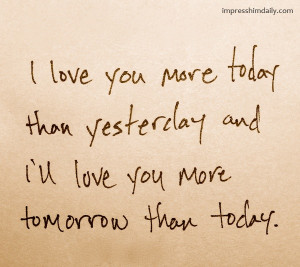 impresshimdaily.com
I love you more today
than yesterday and
i'll love you more
tomorrow than today.